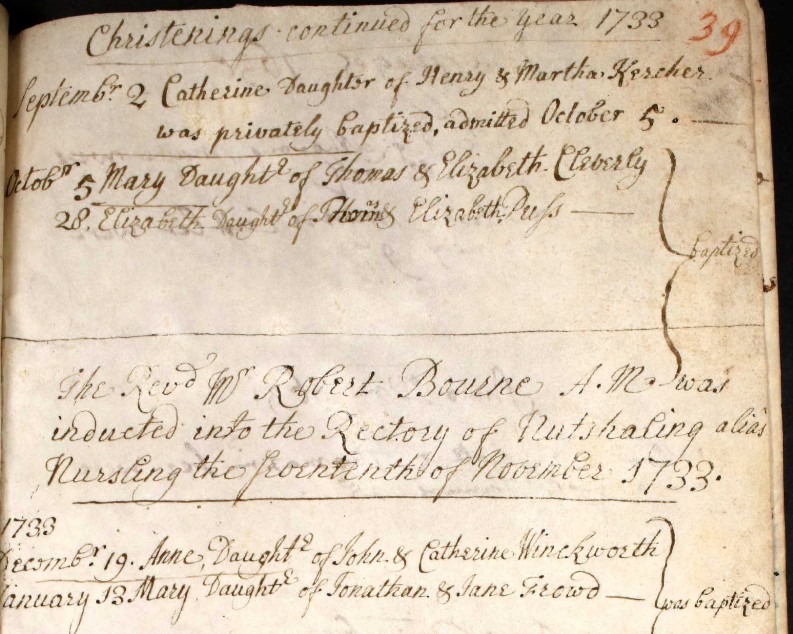 Christenings continued for the Year 1733
39
Septembr 2 Catherine Daughter of Henry & Martha Kercher
was privately baptized, admitted October 5.
Octobr 5 Mary Daughtr of Thomas & Elizabeth Cleverly
28. Elizabeth Daughtr of & Elizabeth
baptized
The Revd Mr Robert Bourne A.M. was
inducted into the Rectory of Nutshaling alias
Nursling the of November 1733.
1733
Decembr 19. Anne, Daughtr of John & Catherine Winckworth
January 13 Mary Daughtr of Jonathan & Jane Frowd
was baptized